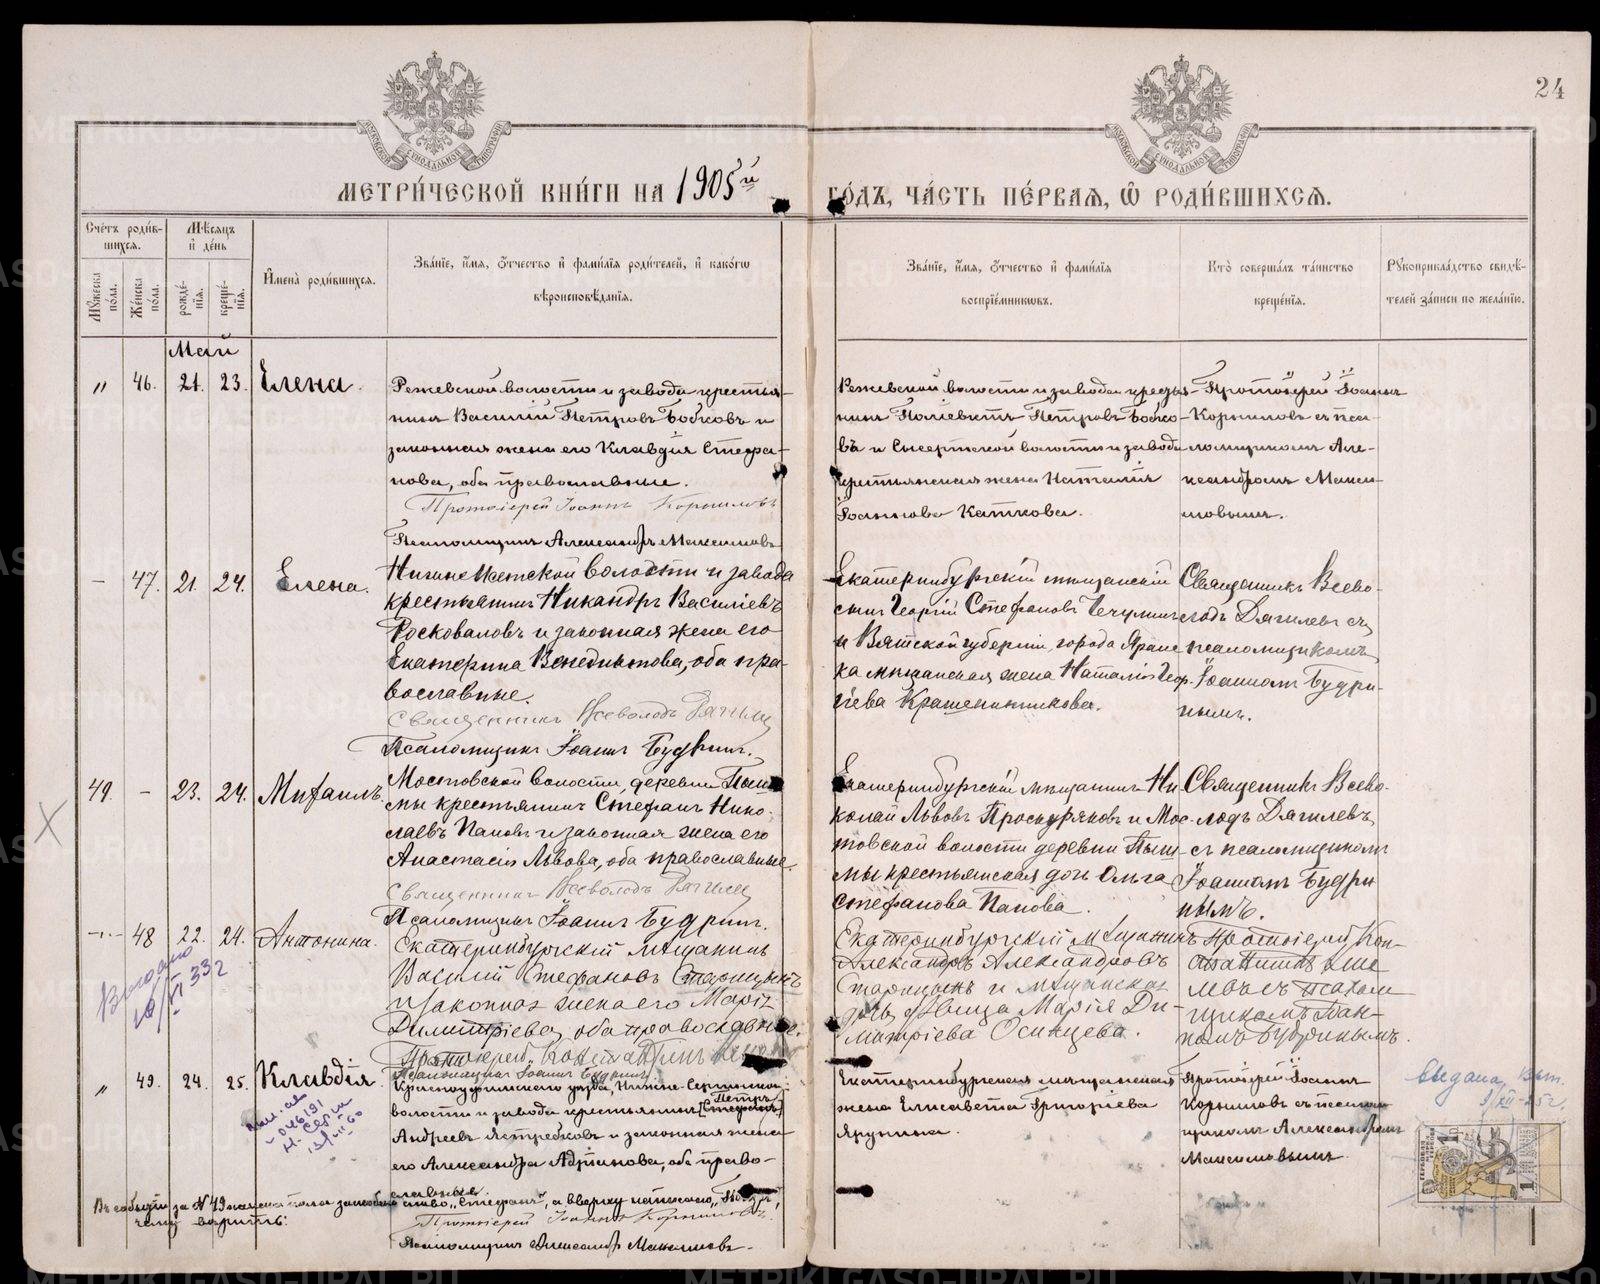 24
МЕТРИ́ЧЕСКОЙ КНИ́ГИ НА 1905й ГО́ДЪ, ЧА́СТЬ ПЕ́РВАѦ, Ѿ РОДИ́ВШИХСѦ.
Сче́тъ роди́в-
шихсѧ.
Мꙋжеска по́ла.
Же́нска по́ла.
Мѣ́сѧцъ
и҆ де́нь
рожде́-
нїѧ.
креще́-
нїѧ.
И҆мена̀ роди́вшихсѧ.
Зва́нїе, и҆́мѧ, ѻ҆́тчество и҆ фами́лїѧ роди́телей, и҆ како́гѡ
вѣроисповѣ́данїѧ.
Зва́нїе, и҆́мѧ, ѻ҆́тчество и҆ фами́лїѧ
воспрїе́мниковъ.
Кто̀ соверша́лъ та́инство
креще́нїѧ.
Рꙋкоприкла́дство свидѣ́-
телей за́писи по жела́нїю.
Май
" 46. 21. 23. Елена.
Режевской волости и завода крестья-
нинъ Василій Петровъ Бобковъ и
законная жена его Клавдія Стефа-
нова, оба православные.
Протоіерей Іоаннъ Корниловъ
Псаломщикъ Александръ Максимовъ
Режевской волости и завода крестья-
нинъ Поліевктъ Петровъ Бобко-
въ и Сысертской волости и завода
крестьянская жена Наталія
Іоаннова Каткова.
Протоіерей Іоаннъ
Корниловъ съ пса-
ломщикомъ Але-
ксандромъ Макси-
мовымъ.
– 47. 21. 24. Елена.
волости и завода
крестьянинъ Никандръ Василіевъ
Росковаловъ и законная жена его
Екатерина Венедиктова, оба пра-
вославные.
Священникъ Всеволодъ Дягилевъ
Псаломщикъ Іоаннъ Будринъ.
Екатеринбургскій мѣщанскій
сынъ Георгій Стефановъ Чечулинъ
и Вятской губерніи, города Яранс
ка мѣщанская жена Наталія Геор-
гіева Крашенинникова.
Священникъ Всево-
лодъ Дягилевъ съ
псаломщикомъ
Іоанномъ Будри-
нымъ.
49. – 23. 24. Михаилъ.
Мостовской волости, деревни Пыш
мы крестьянинъ Стефанъ Нико-
лаевъ Пановъ и законная жена его
Анастасія Львова, оба православные.
Священникъ Всеволодъ Дягилевъ
Псаломщикъ Іоаннъ Будринъ.
Екатеринбургскій мѣщанинъ Ни
колай Львовъ Проскуряковъ и Мос-
товской волости деревни Пыш-
мы крестьянская дочь Ольга
Стефанова Панова.
Священникъ Всево-
лодъ Дягилевъ
съ псаломщикомъ
Іоанномъ Будри
нымъ.
48 22. 24. Антонина.
Екатеринбургскій мѣщанинъ
Василій Стефановъ Старицынъ
и законная жена его Марія
Димитріева, оба православные.
Псаломщикъ Іоаннъ Будринъ
Екатеринбургскій мѣщанинъ
Александръ Александровъ
Старицынъ и мѣщанская
дочь дѣвица Марія Ди-
митріева Осинцева.
Протоіерей Кон-
стантинъ
съ псалом
щикомъ Іоан-
номъ Будринымъ.
Выдано
" 49. 24. 25. Клавдія.
Красноуфимскаго уѣзда, Нижне-Сергинской
волости и завода крестьянинъ [Стефанъ] Петръ
Андреевъ Ястребковъ и законная жена
его Александра Адріанова, оба право-
славные
Протоіерей Іоаннъ Корниловъ.
Псаломщикъ Александръ Максимовъ.
Екатеринбургская мѣщанская
жена Елисавета Григоріева
Ярунина.
Протоіерей Іоаннъ
Корниловъ съ псалом-
щикомъ Александромъ
Максимовымъ.
выдана
Въ событіи за № 49 женска пола зачеркнуто слово „Стефанъ", а вверху написано „Петръ",
чему вѣрить.